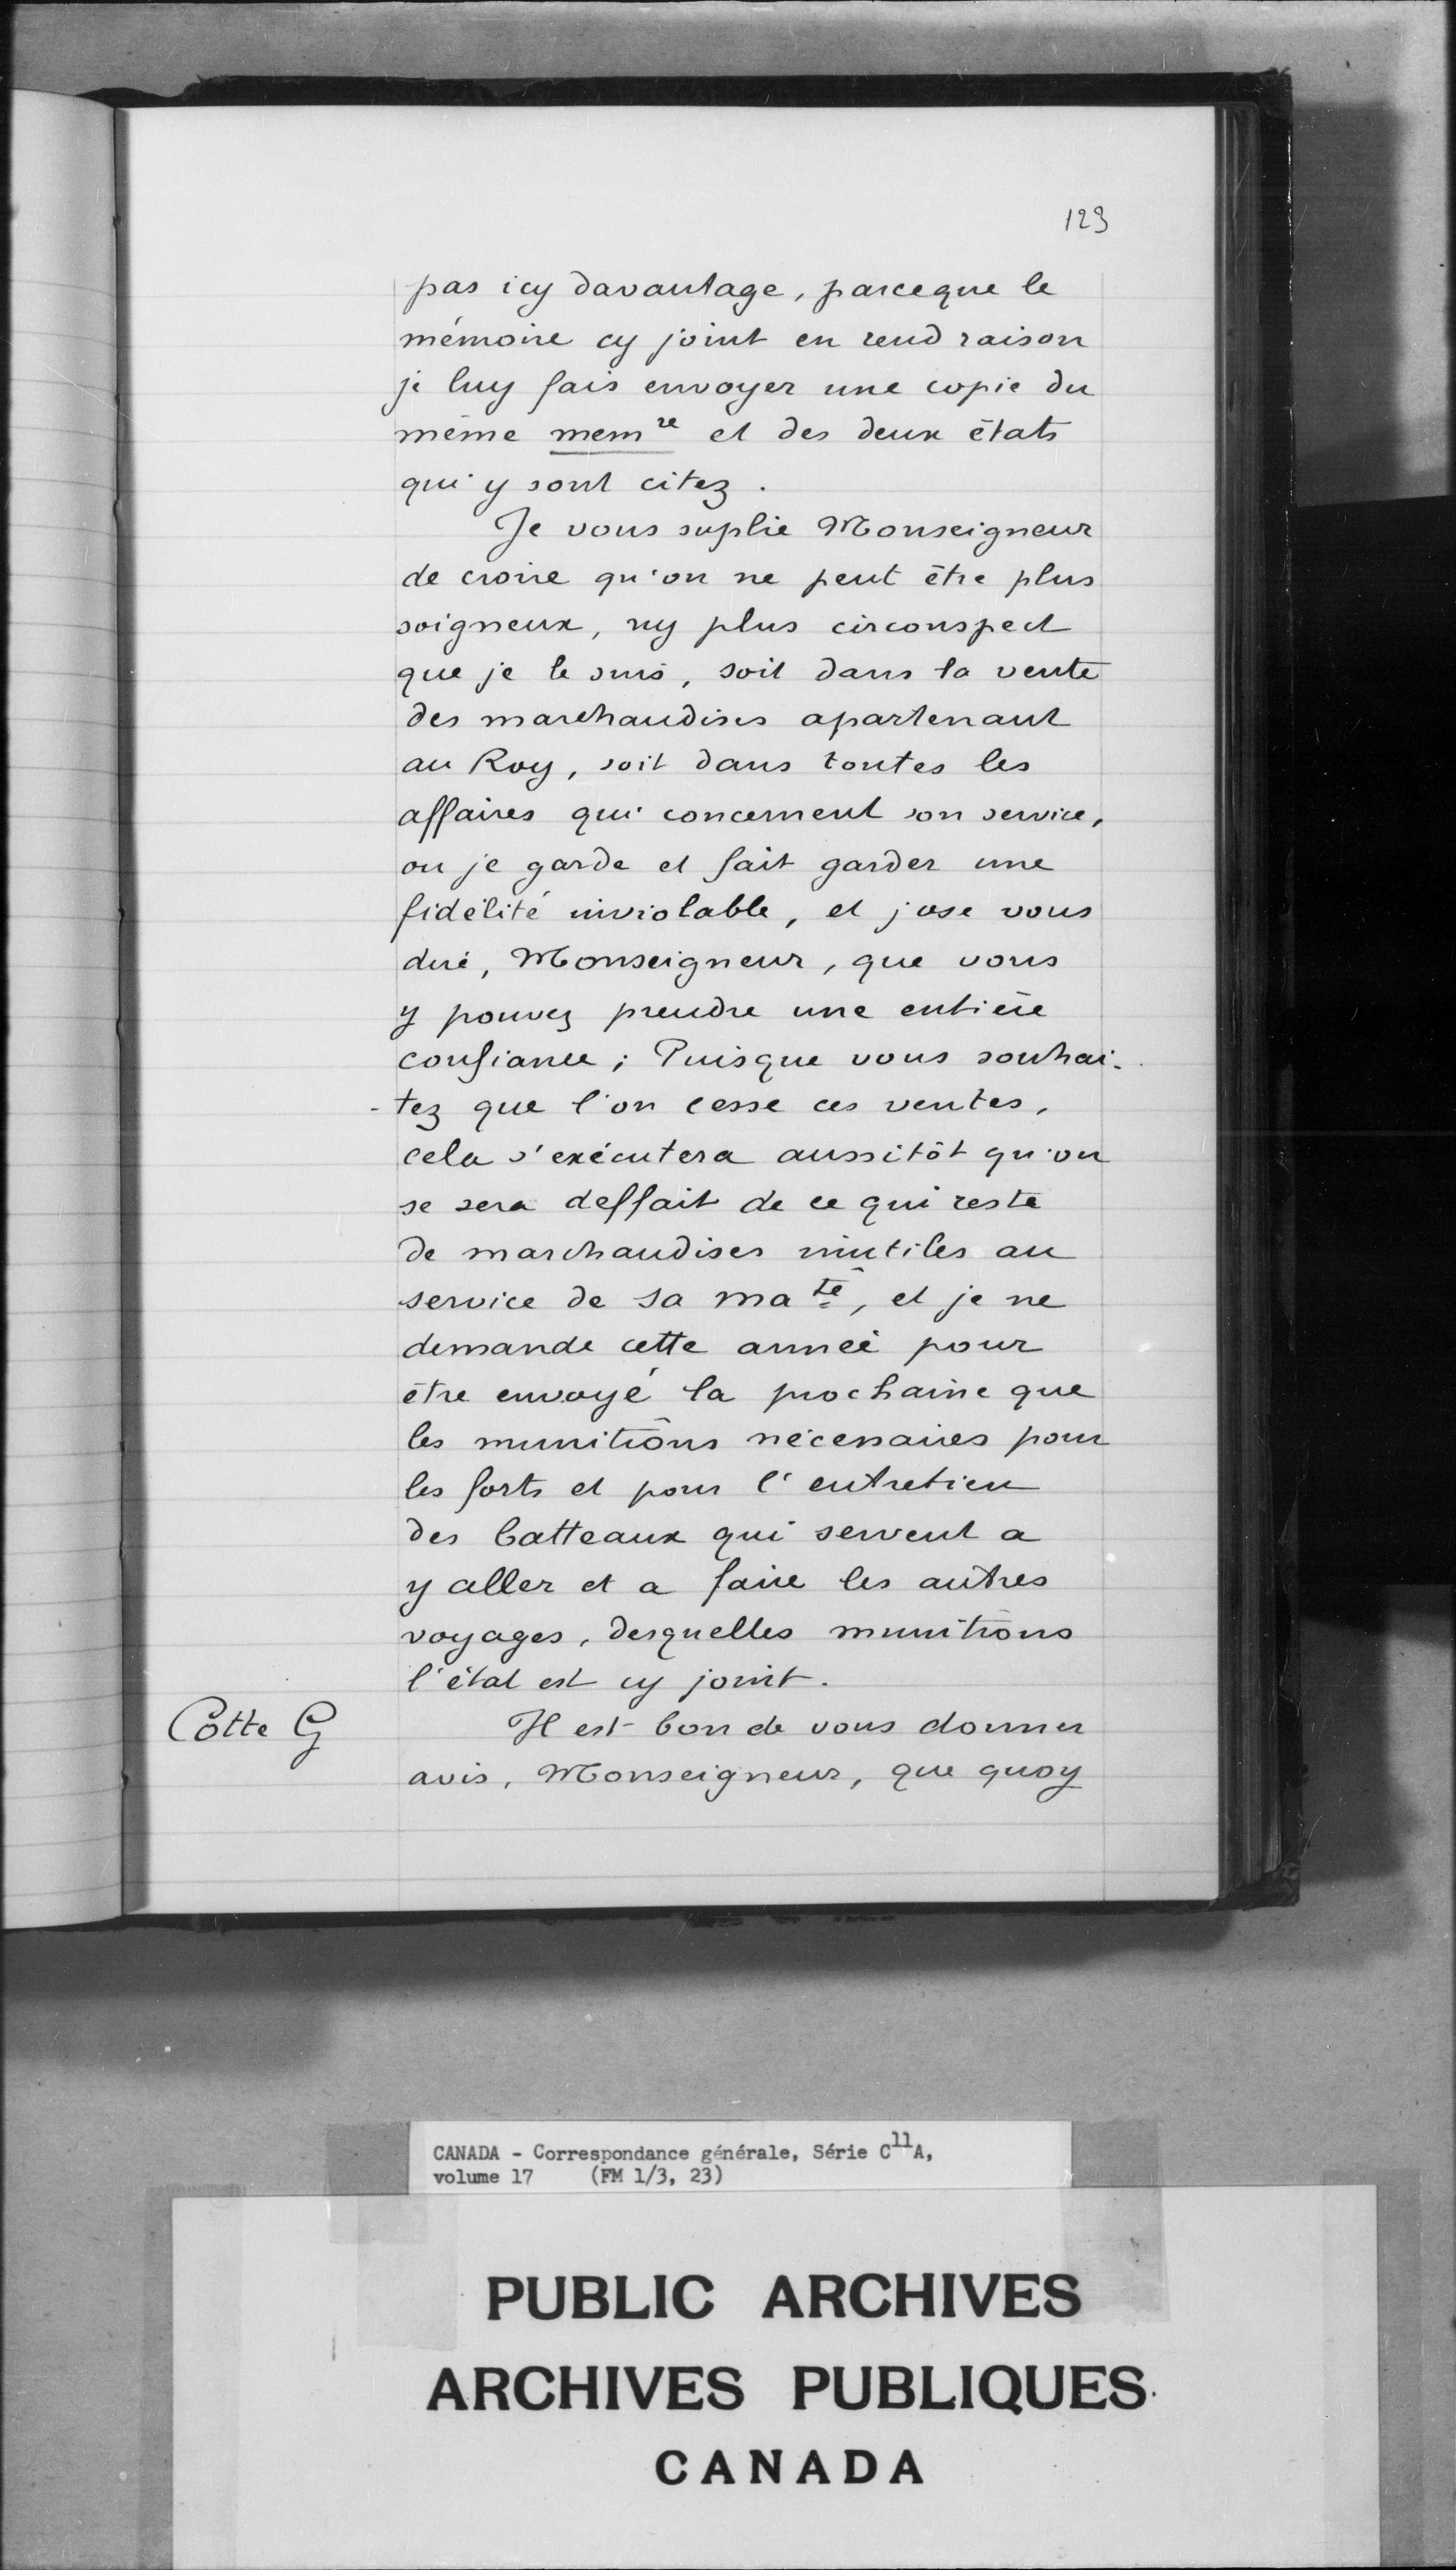 123
pas icy davantage, parceque le
mémoire cy joint en rend raison
je luy fais envoyer une copie du
même mem.re et des deux états
qui y sont citez.
Je vous suplie Monseigneur
de croire qu'on ne peut être plus
soigneux, ny plus circonspect
que je le suis, soit dans la vente
des marchandises apartenant
au Roy, soit dans toutes les
affaires qui concernent son service,
ou je garde et fait garder une
fidélité inviolable, et j'ose vous
dire, Monseigneur, que vous
y pouvez prendre une entière
confiance; Puisque vous souhai-
-tez que l'on cesse ces ventes,
cela s'exécutera aussitôt qu'on
se sera deffait de ce qui reste
de marchandises inutiles au
service de sa ma té, et je ne
demande cette année pour
être envoyé la prochaine que
les munitions nécessaires pour
les forts et pour l'entretien
des batteaux qui servent a
y aller et a faire les autres
voyages, desquelles munitions
l'état est cy joint.
Cotte G
Il est bon de vous donner
avis, Monseigneur, que quoy
CANADA - Correspondance générale, Série C11A,
volume 17 (FM 1/3, 23)
PUBLIC ARCHIVES
ARCHIVES PUBLIQUES
CANADA